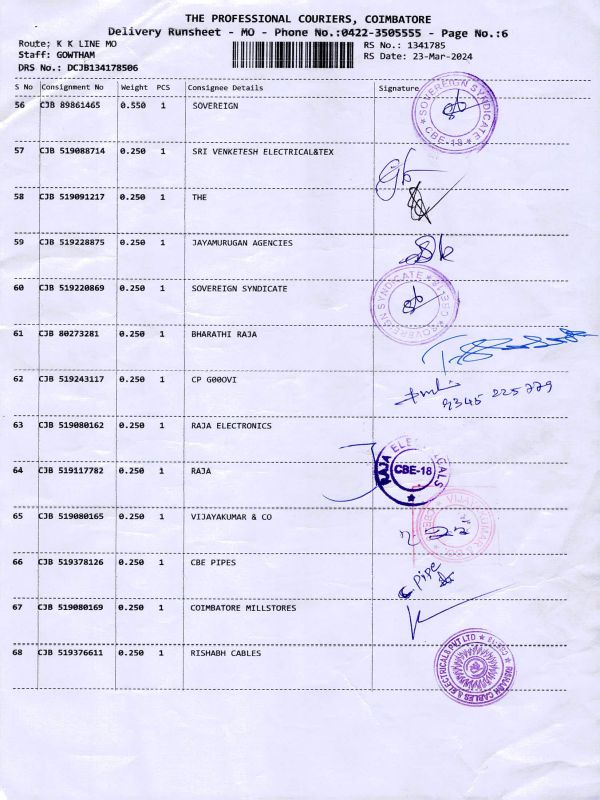 THE PROFESSIONAL COURIERS, COIMBATORE
Delivery Runsheet - MO - Phone No.:0422-3505555 - Page No.:6
Route; K K LINE MO RS No.: 1341785
Staff: GOWTHAM RS Date: 23-Mar-2024
DRS No.: DCJB134178506
S No Consignment No Weight PCS Consignee Details Signature
56 CJB 89861465 0.550 1 SOVEREIGN
SOVEREIGN SYNDICATE CBE-18
57 CJB 519088714 0.250 1 SRI VENKETESH ELECTRICAL&TEX
58 CJB 519091217 0.250 1 THE
59 CJB 519228875 0.250 1 JAYAMURUGAN AGENCIES
60 CJB 519220869 0.250 1 SOVEREIGN SYNDICATE
SOVEREIGN SYNDICATE CBE-18
61 CJB 80273281 0.250 1 BHARATHI RAJA
62 CJB 519243117 0.250 1 CP G00OVI
9345 225779
63 CJB 519080162 0.250 1 RAJA ELECTRONICS
64 CJB 519117782 0.250 1 RAJA
RAJA ELECTRICALS CBE-18
65 CJB 519080165 0.250 1 VIJAYAKUMAR & CO
VIJAYAKUMAR & CO
66 CJB 519378126 0.250 1 CBE PIPES
C. Pipe
67 CJB 519080169 0.250 1 COIMBATORE MILLSTORES
68 CJB 519376611 0.250 1 RISHABH CABLES
RISHABH CABLES & ELECTRICALS PVT LTD CBE-18